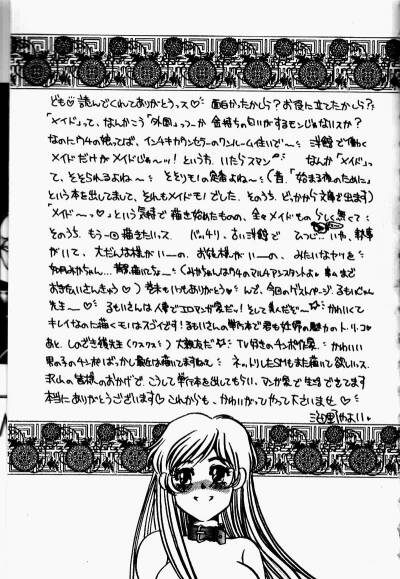 どもっ 読んでくれてありがとうっス♡ 面白かったかしら? お役に立てたかしら??
「メイド」って、なんかこう「外国」っつーか 金持ちの匂いがするモンじゃないスか?
なのにウチの娘ってば、インチキカウンセラーのワンルーム住いで〜 洋館で働く
メイドだけがメイドじゃねーッ!! というわ、いたらスマン なんか「メイド」っ
て、そそられるよね〜 そそりモノの定番よね〜 (昔、「始まる夜のために」
という本を出してまして、それもメイドモノでした。そのうち どっかから文庫で出ます)
「メイド〜ッ」という気持で描き始めたものの、全々メイドもの らしく無くて
そのうち、もう一回描きたいッス。 バッチリ、古い洋館で ひつじ…いや、執事
がいて、大だんな様がいーの、お乳様がいーの、みたいなヤツを
おきたいさんきゅう♡) 巻末もいつもありがとう♡ んで、今回のゲストページ、るもいじゅん
先生ー♡ るもいさんは人妻でエロマンガ家だッ! そして美人だぞー☆ かわいくて
キレイなのに描くモノはスゴイデス! るもいさんの単行本で君も妊婦の魅力のト・リ・コ♡
あと、しのざき嶺先生(クスクス) 大親友だ☆ TV好きのチンポ作家。かわいい
男の子のチンポばっかし最近は描いてますねん ネットリしたSMもまた描いて欲しいッス。
沢山の皆様のおかげで、こうして単行本を出してもらい、マンガ家で生活できてます
本当にありがとうございます♡ これからも、かわいがってやって下さいませ♡